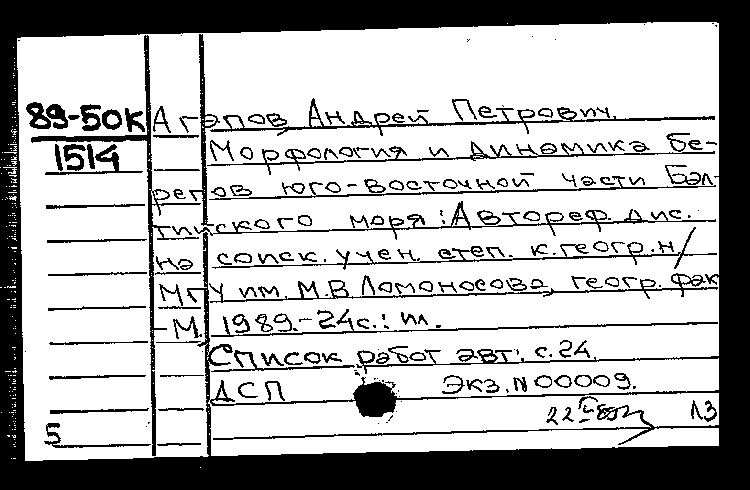 89-50К Агапов Андрей Петрович.
1514 Морфология и динамика бе-
регов юго-восточной части Бал-
тийского моря: Автореф. дис.
на соиск. учен. степ. к.геогр.н/
МГУ им. М.В Ломоносова, геогр. фак
-М. 1989.-24с.: ил.
Список работ авт.: с.24.
ДСП Экз. N 00009.
22 Л3
5